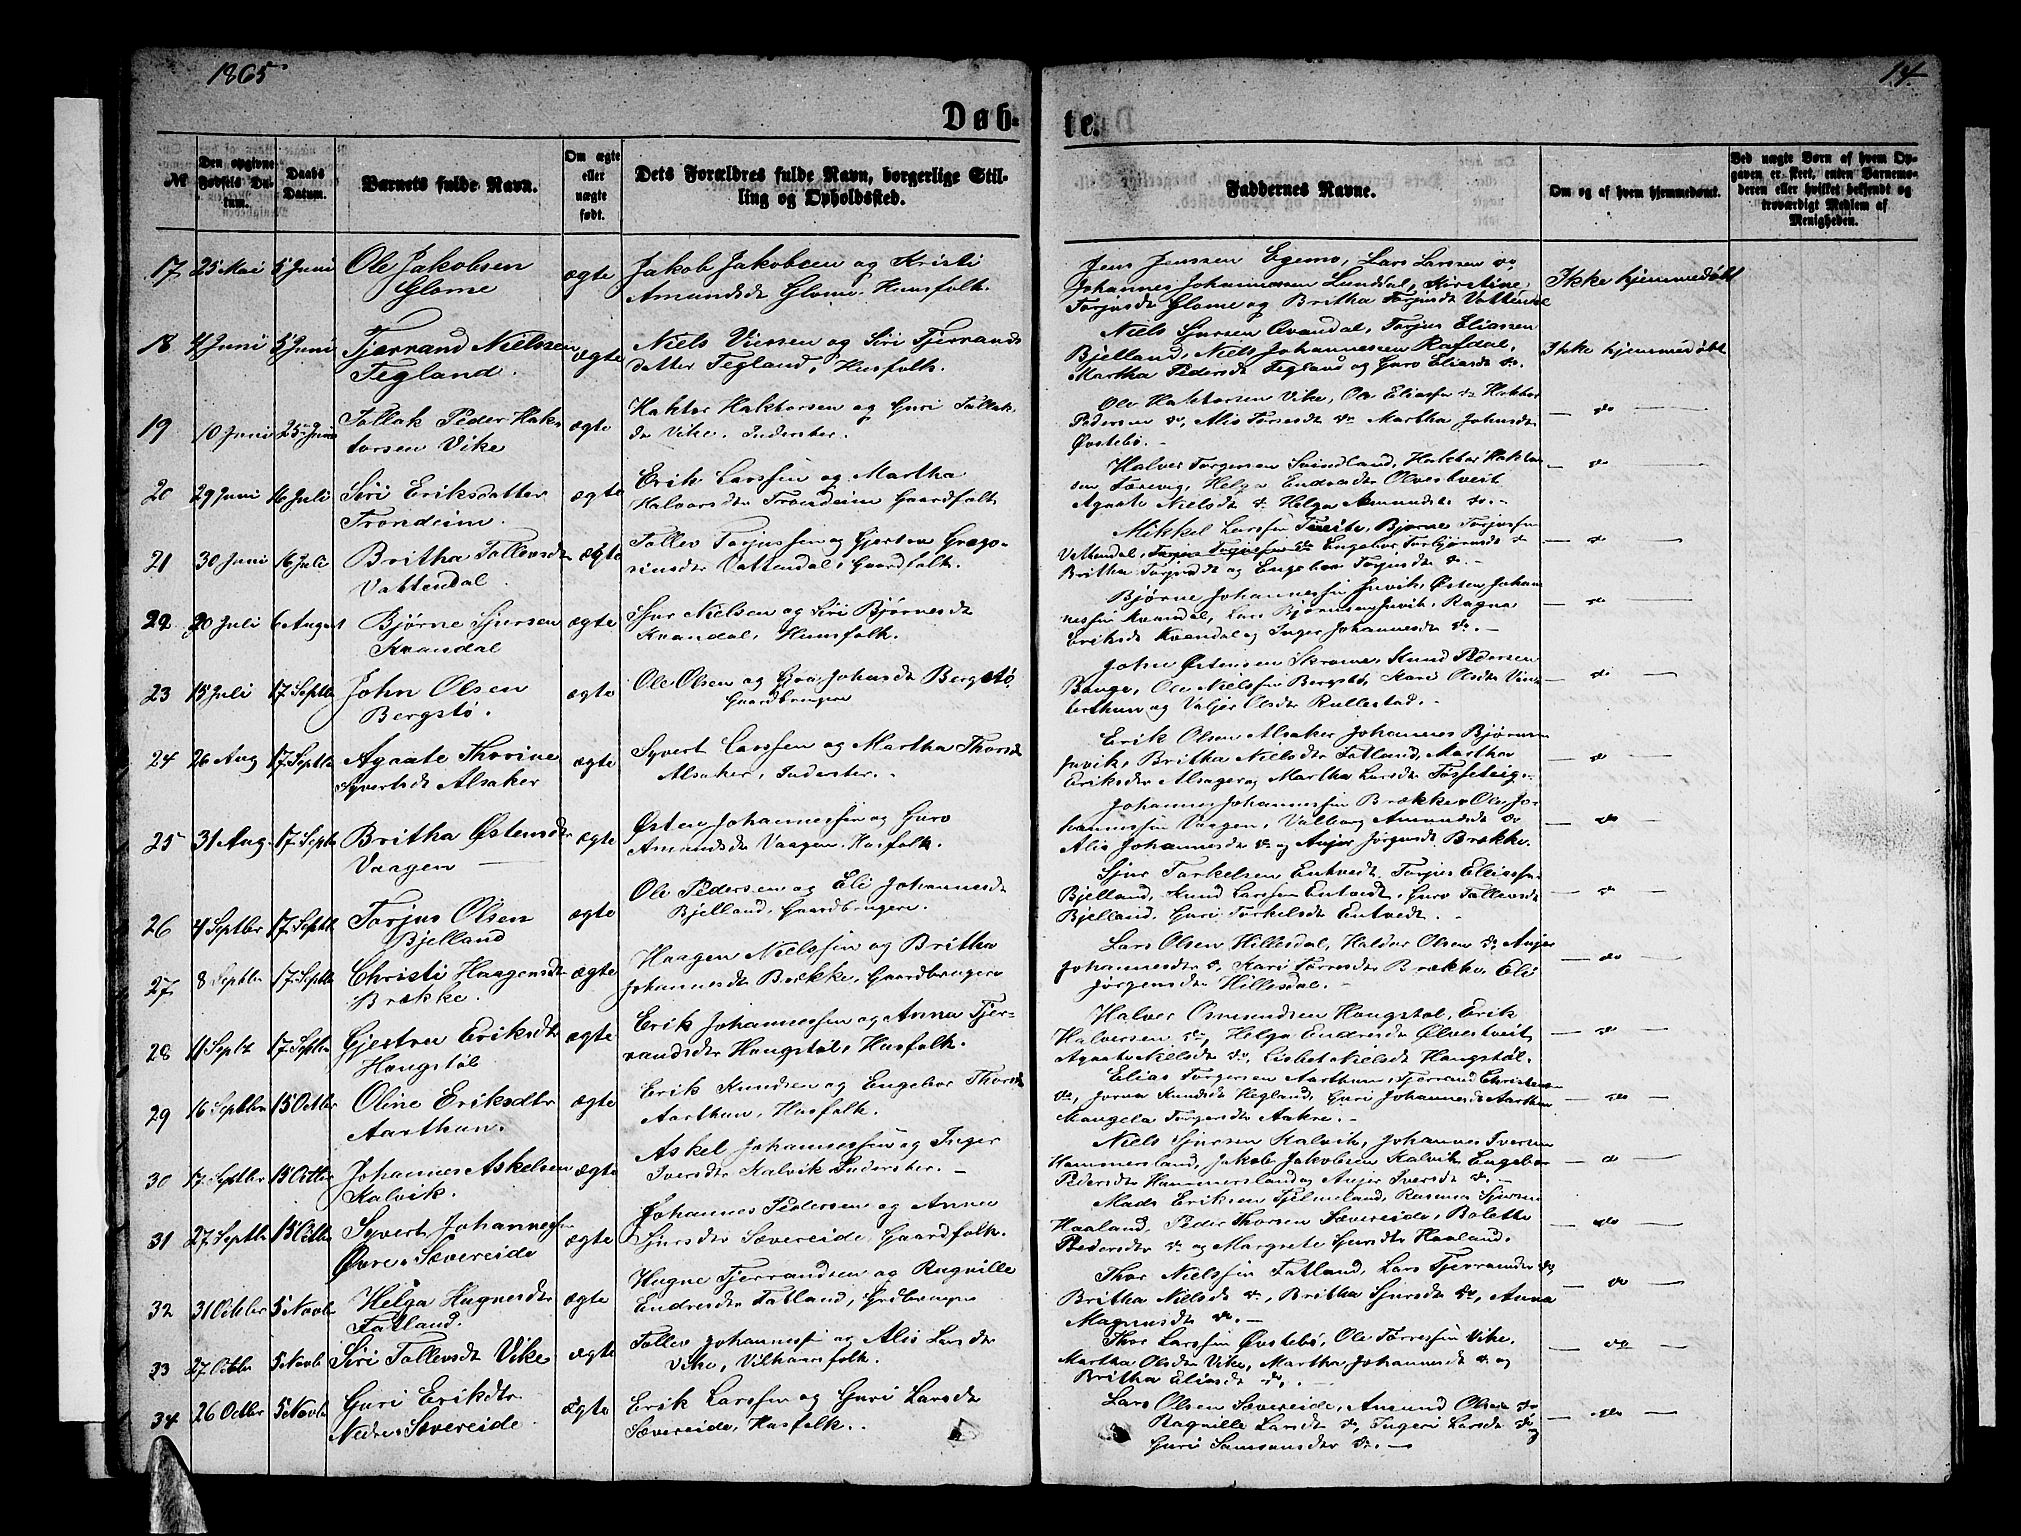 1865
14.
Døb-
te.
№
Den opgivne Fødsels Datum.
Daabs Datum.
Barnets fulde Navn.
Om ægte eller uægte født.
Dets Forældres fulde Navn, borgerlige Stilling og Opholdssted.
Faddernes Navne.
Om og af hvem hjemmedøbt.
Ved uægte Børn af hvem Opgaven er skeet, enten Barnemoderen eller hvilket bekjendt og troværdigt Medlem af Menigheden.
17 25 Mai 5 Juni Ole Jakobsen ægte Jakob Jakobsen og Kristi
Glome Amundsdt Glome. Husfolk.
Jens Jenssen Egemo, Lars Larssen do,
Johannes Johannessen Lunddal, Kirstine Ikke hjemmedøbt
Torjusdt Glome og Britha Torjusdt Vattendal
18 4 Juni 5 Juni Tjerrand Nielssen ægte Niels Viersen og Siri Tjerrands
Tegland. datter Tegland, Husfolk.
Niels Sjursen Qvandal, Torjus Eliassen
Bjelland, Niels Johannessen Rafdal, Ikke hjemmedøbt
Martha Pedersdt Tegland og Guro Eliasdt do.
19 10 Juni 25 Juni Tollak Peder Hak- ægte Haktor Haktorsen og Guri Tollak
torsen Vike dr Vike. Inderster.
Ole Haktorsen Vike, Ole Eliassen do Haktor
Pedersen do, Alis Torresdt do Martha Johnsdt — do —
Øvstebö. -
20 29 Juni 16 Juli Siri Eriksdatter ægte Erik Larssen og Martha
Trondeim. Halvorsdtr Trondeim Gaardfolk
Halver Torgersen Svindland, Haktor Haktor — do —
sen Førevig, Helga Endresdtr Ølvestveit
Agaate Nielsdt do Helga Amundsdt do. -
21 30 Juni 16 Juli Britha Tollevsdtr ægte Tollev Torjussen og Gjertru Grego-
Vattendal riusdtr Vattendal, Gaardfolk.
Mikkel Larssen Tveite, Bjørne Torjussen
Vattendal, Engebor Torbjørnsdt do — do —
Britha Torjusdt og Engebor Torjusdt do. -
22 20 Juli 6 August Bjørne Sjursen ægte Sjur Nielsen og Siri Bjørnesdt
Kvandal Kvandal, Husfolk.
Bjørne Johannessen Juvik, Østen Johan
nessen Kvandal, Lars Bjørnesen Juvik, Ragna — do —
Eriksdt Kvandal og Inger Johannesdt do. -
23 15 Juli 17 Septbr John Olsen ægte Ole Olsen og Gjoa Johnsdt Bergstø
Bergstø. Gaardbrugere
John Østensen Skromme, Knud Pedersen
Bauge, Ole Nielssen Bergstø, Kari Olsdtr Vin — do —
terthun og Valjer Olsdtr Rullestad. -
24 26 Aug 17 Septbr Agaate Thorine ægte Syvert Larssen og Martha Thorsdt
Syvertsdt Alsaker Alsaker, Inderster. -
Erik Olsen Alsaker Johannes Bjørnsen
Juvik, Britha Nielsdt Fatland, Martha — do —
Eriksdtr Alsager og Martha Larsdtr Fosseteig. -
25 31 Aug. 17 Septb Britha Østensdtr ægte Østen Johannessen og Guro
Vaagen — Amundsdtr Vaagen. Husfolk.
Johannes Johannessen Brække, Ole Jo-
hannessen Vaagen, Valborg Amundsdt do — do —
Alis Johannesdt do og Anjer Jørgensdt Brække.
26 4 Septbr 17 Septbr Torjus Olsen ægte Ole Pedersen og Eli Johannesdt
Bjelland Bjelland, Gaardbrugere.
Sjur Torkelsen Entvedt, Torjus Eliassen
Bjelland, Knud Larssen Entvedt, Guro Tollevsdt — do —
Bjelland, Guri Torkelsdt Entvedt. -
27 8 Septbr 17 Septbr Christi Haagensdtr ægte Haagen Nielssen og Britha
Brække. Johannesdt Brække, Gaardbrugere
Lars Olsen Hillesdal, Haldor Olsen do Anjer
Johannesdtr do, Kari Torresdt Brække, Eli — do —
Jørgensdt Hillesdal. -
28 11 Septbr 17 Septbr Gjertru Eriksdtr ægte Erik Johannessen og Anna Tjer-
Haugstøl randsdtr Haugstøl, Husfolk.
Halver Osmundsen Haugstøl, Erik
Halversen do, Helga Endresdtr Ølvestveit, — do —
Agaate Nielsdt do, Lisbet Nielsdt Haugstøl.
29 16 Septbr 15 Octbr Oline Eriksdtr ægte Erik Knudsen og Engebor Thorsdt
Aarthun. Aarthun, Husfolk.
Elias Torgersen Aarthun, Tjerrand Christensen
do, Jorina Knudsdt Hegland, Guri Johannesdt Aarthun — do —
Mangela Torgersdtr Aakre. -
30 17 Septbr 15 Octbr Johannes Askelsen ægte Askel Johannessen og Inger
Kalvik. Iversdtr Kalvik Inderster. -
Niels Sjursen Kalvik, Johannes Iversen
Hammersland, Jakob Jakobsen Kalvik, Engebor — do —
Pedersdt Hammersland og Anjer Iversdt do. -
31 27 Septbr 15 Octbr Syvert Johannessen ægte Johannes Pedersen og Anna
Øvre Sævereide Sjursdtr Sævereide, Gaardfolk.
Mads Eriksen Tjelmeland, Rasmus Sjursen
Haaland, Peder Thorsen Sævereide, Bolette — do —
Pedersdtr do og Margrete Sjursdtr Haaland.
32 31 Octbr 5 Novbr Helga Hugnesdtr ægte Hugne Tjerrandsen og Ragnille
Fatland. Endresdtr Fatland, Grdbrugere
Thor Nielssen Fatland, Lars Tjerrandsen do,
Britha Nielsdt do, Britha Sjursdt do, Anna — do —
Magnusdt do. -
33 27 Octbr 5 Novb Siri Tollevsdt Vike ægte Tollev Johannessen og Alis Larsdtr
Vike, Vilkaarsfolk.
Thor Larssen Øvstebø, Ole Torressen Vike,
Martha Olsdtr Vike, Martha Johannesdt do og — do —
Britha Eliasdt do. -
34 26 Octbr 5 Novbr Guri Eriksdtr ægte Erik Larssen og Guri Larsdt
Nedre Sævereide Sævereide, Husfolk. -
Lars Olsen Sævereide, Amund Olsen do
Ragnille Larsdt do, Ingeri Larsdt do og — do —
Guri Samsonsdtr do. -